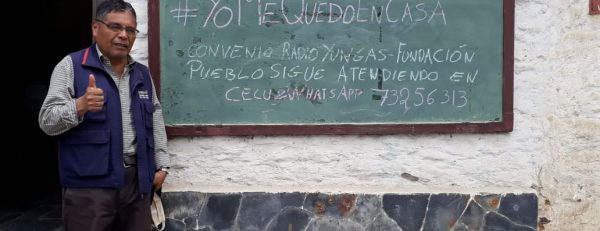 #YOMEQUEDOENCASA
CONVENIO RADIO YUNGAS-FUNDACIÓN
PUEBLO SIGUE ATENDIENDO EN
CELU WHATSAPP 73256313